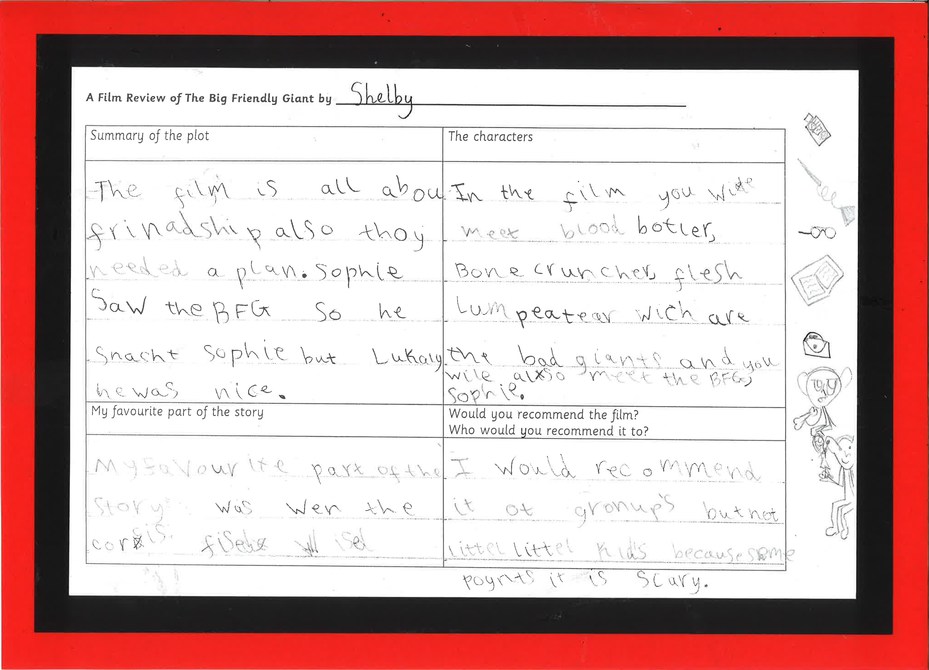 A Film Review of The Big Friendly Giant by Shelby
Summary of the plot
The film is all abou
frinadship also thoy
needed a plan. Sophie
Saw the BFG So he
Snacht Sophie but Lukaly
he was nice.
The characters
In the film you wile
meet blood botler,
Bone cruncher, flesh
Lum peatear wich are
the bad giants and you
wile also meet the BFG,
Sophie.
My favourite part of the story
My favourite part of the
Story was wen the
Would you recommend the film?
Who would you recommend it to?
I would recommend
it ot gronup's but not
littel littel kids because some
poynts it is scary.